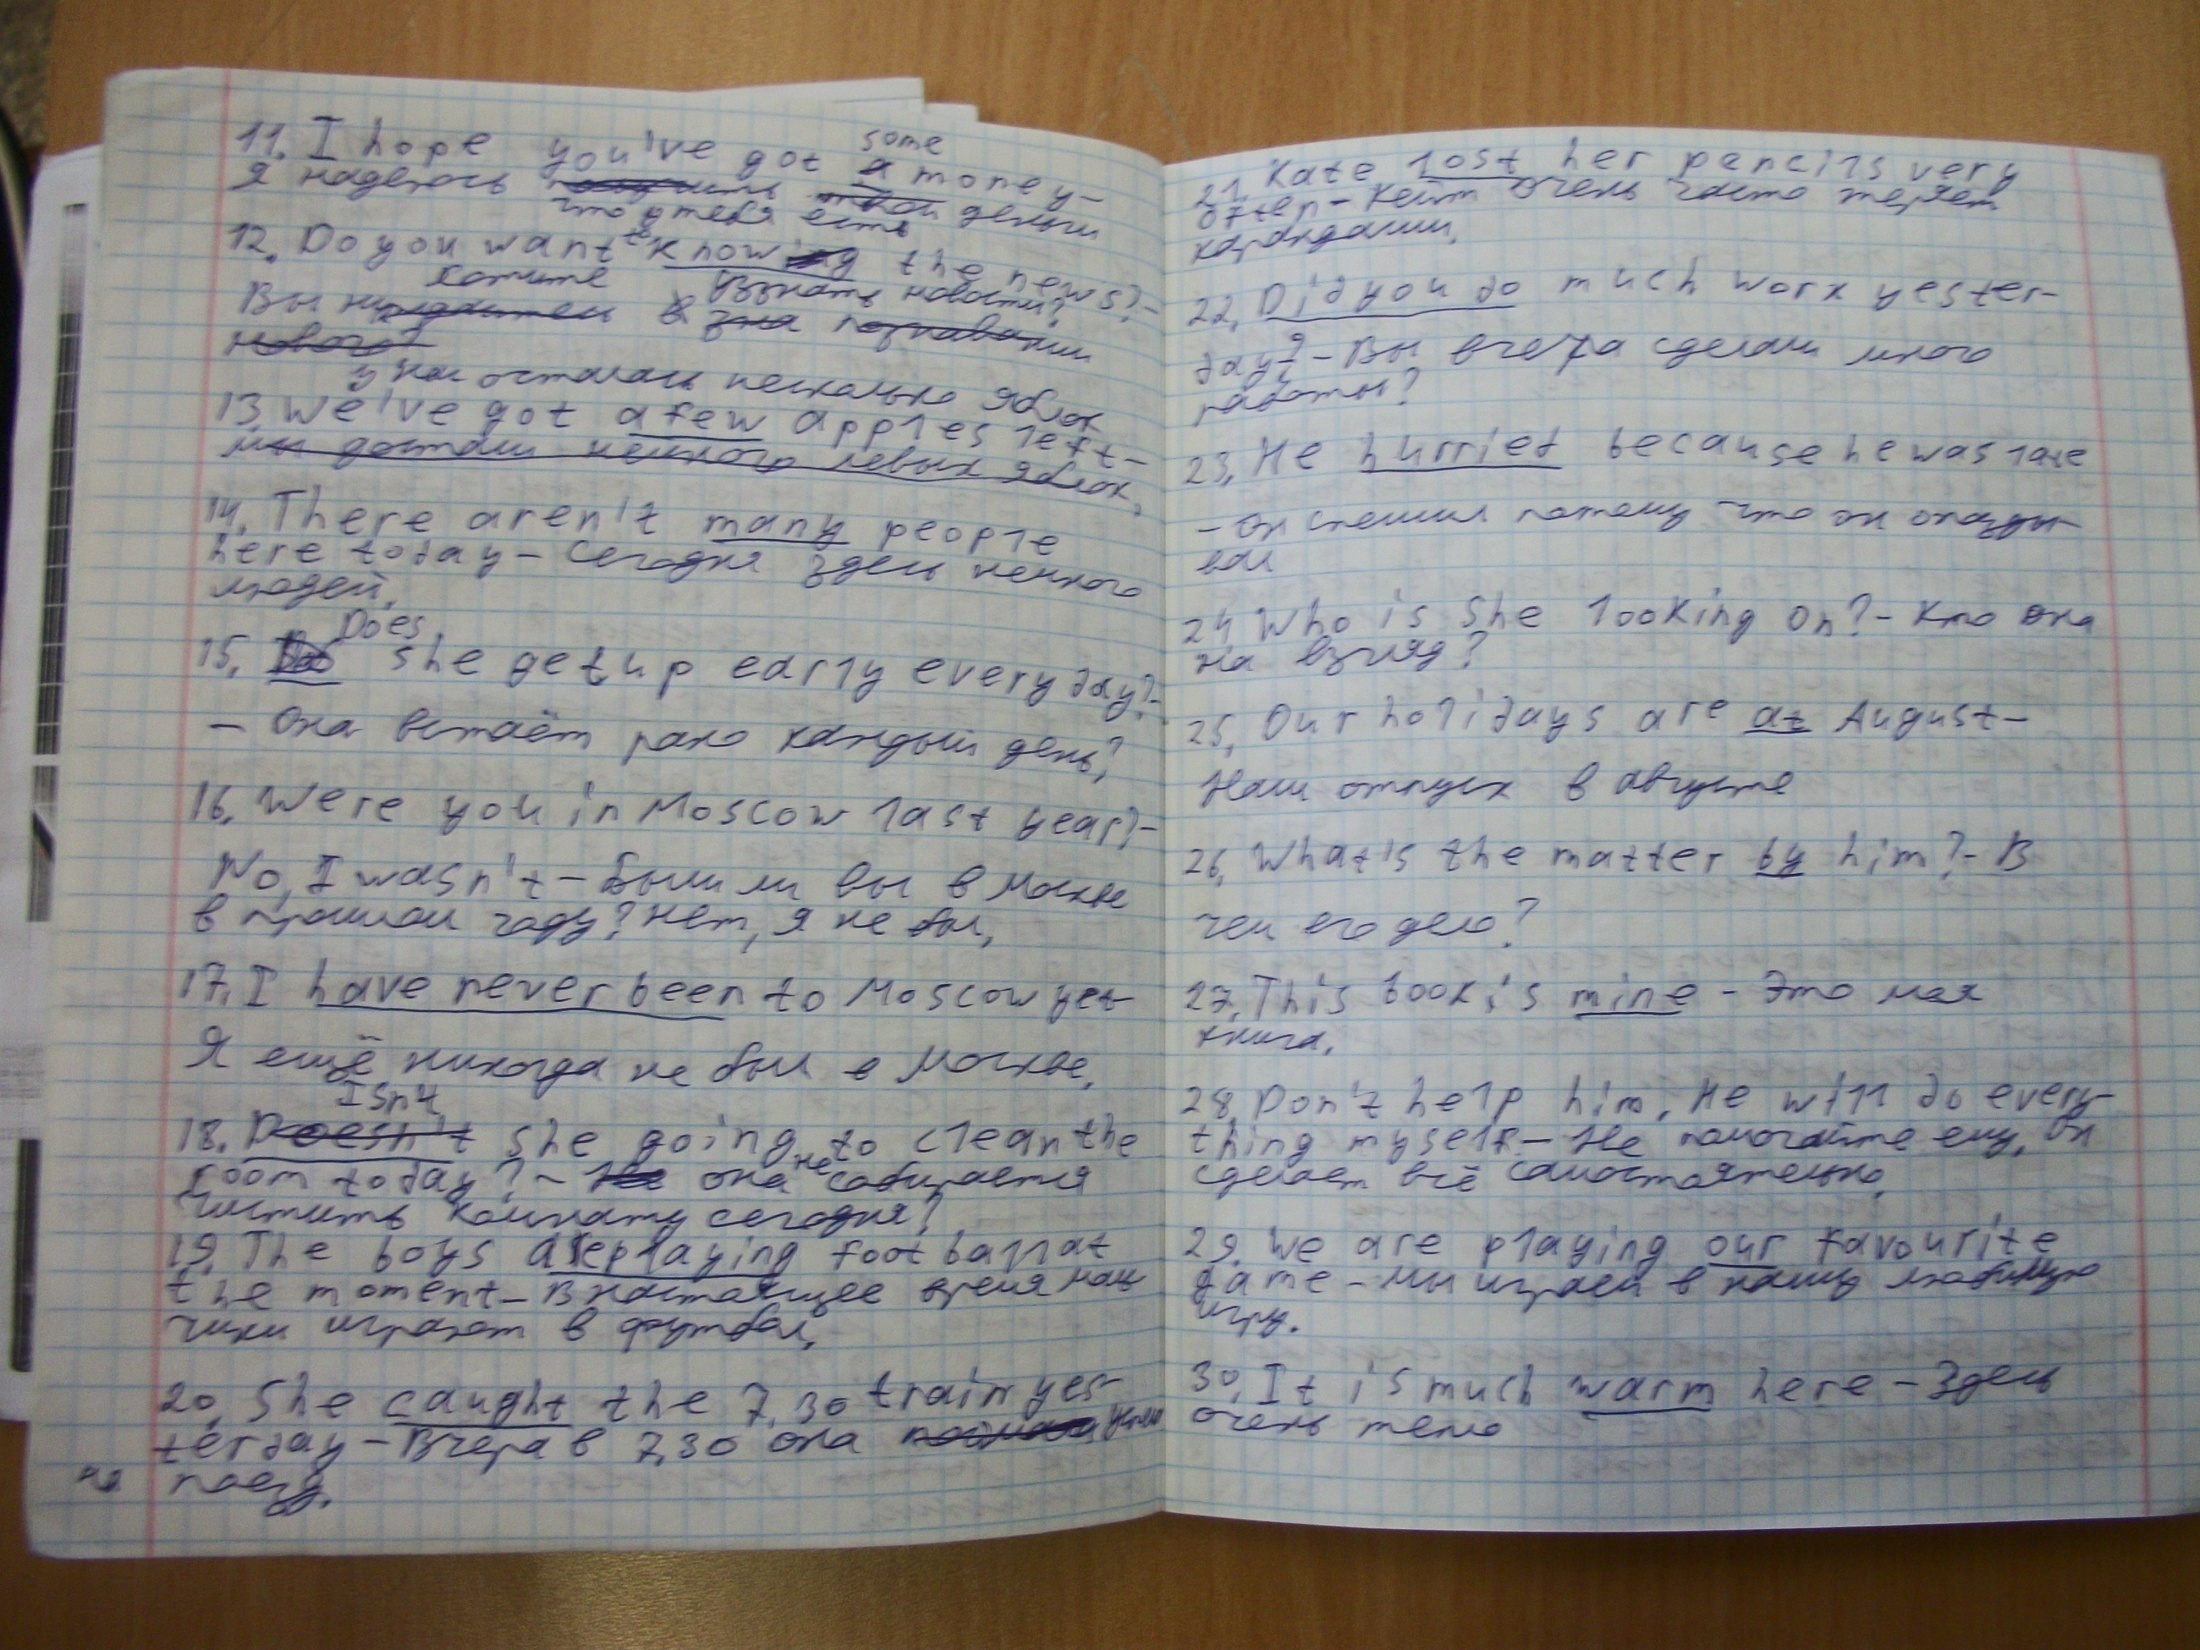 some
11. I hope you've got a money-
Я надеюсь получить твои деньги
что у тебя есть
12. Do you want to knowing the news?-
хотите узнать новости?
Вы нуждаетесь в
нового?
у нас осталось несколько яблок
13. We've got a few apples left-
мы достали немного левых яблок,
14. There aren't many people
here today - Сегодня здесь немного
людей.
Does
15. she get up early every day?-
- Она встаёт рано каждый день?
16. Were you in Moscow last year?-
No, I wasn't - Были ли вы в Москве
в прошлом году? Нет, я не был,
17. I have never been to Moscow yet-
Я ещё никогда не был в Москве.
Isn't
18. Doesn't she going to clean the
room today? - она не собирается
чистить комнату сегодня?
19. The boys are playing football at
the moment - В настоящее время маль
чики играют в футбол,
20. She caught the 7.30 train yes-
terday - Вчера в 7.30 она поймала успела
на поезд.
21. Kate lost her pencils very
often - Кейт очень часто теряет
карандаши.
22. Did you do much work yester-
day? - Вы вчера сделали много
работы?
23. He hurriet because he was late
- Он спешил потому что он опазды
вал
24. Who is She looking on? - Кто она
на взгляд?
25. Our holidays are at August -
Наш отпуск в августе
26. What's the matter by him? - В
чем его дело?
27. This book is mine - Это моя
книга.
28. Don't help him. He will do every-
thing myself - Не помогайте ему, он
сделает всё самостоятельно.
29. We are playing our favourite
game - Мы играем в нашу любимую
игру.
30. It is much warm here - Здесь
очень тепло